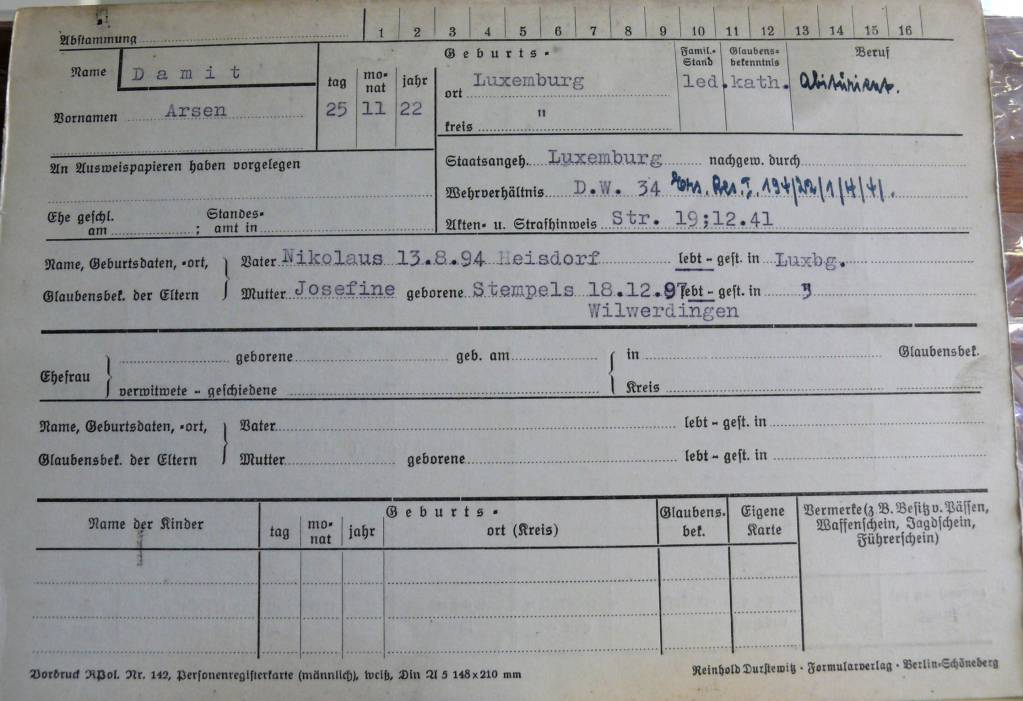 Abstammung 1 2 3 4 5 6 7 8 9 10 11 12 13 14 15 16
Name Damit
Vornamen Arsen
tag monat jahr
25 11 22
Geburts-
ort Luxemburg
kreis "
Famil.-Stand led.
Glaubensbekenntnis kath.
Beruf Abiturient.
An Ausweispapieren haben vorgelegen
Ehe geschl. am ; Standesamt in
Staatsangeh. Luxemburg nachgew. durch
Wehrverhältnis D.W. 34 Ers. Res. I. 194/22/1/4/41.
Akten- u. Strafhinweis Str. 19;12.41
Name, Geburtsdaten, -ort, Glaubensbek. der Eltern
Vater Nikolaus 13.8.94 Heisdorf lebt - gest. in Luxbg.
Mutter Josefine geborene Stempels 18.12.97 lebt - gest. in "
Wilwerdingen
Ehefrau geborene geb. am in Glaubensbek.
verwitwete - geschiedene Kreis
Name, Geburtsdaten, -ort, Glaubensbek. der Eltern
Vater lebt - gest. in
Mutter geborene lebt - gest. in
Name der Kinder
Geburts-
tag monat jahr ort (Kreis)
Glaubens. bek.
Eigene Karte
Vermerke (z B. Besitz v. Pässen, Waffenschein, Jagdschein, Führerschein)
Vordruck RPol. Nr. 142, Personenregisterkarte (männlich), weiß, Din A 5 148 x 210 mm
Reinhold Durstewitz · Formularverlag · Berlin-Schöneberg